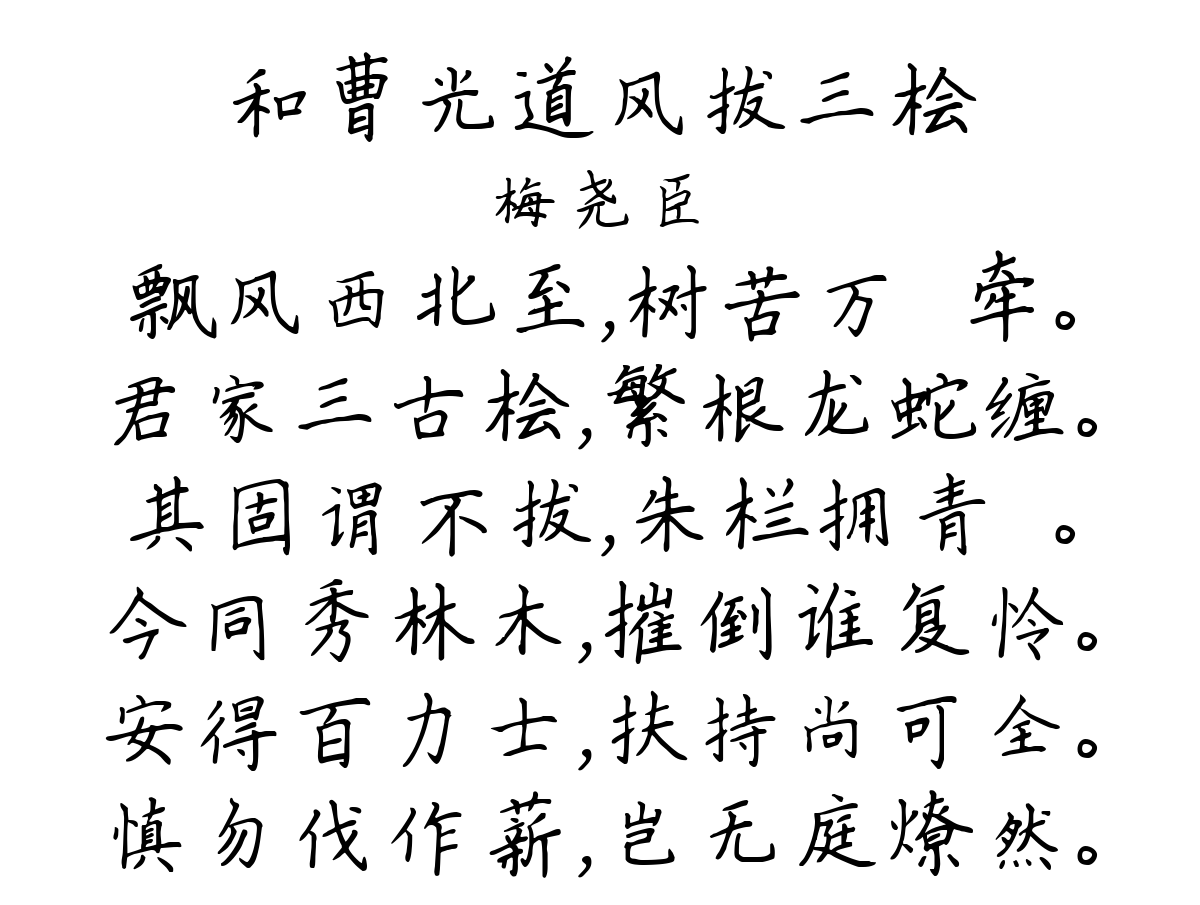 和曹光道风拔三桧
梅尧臣
飘风西北至,树苦万 牵。
君家三古桧,繁根龙蛇缠。
其固谓不拔,朱栏拥青 。
今同秀林木,摧倒谁复怜。
安得百力士,扶持尚可全。
慎勿伐作薪,岂无庭燎然。